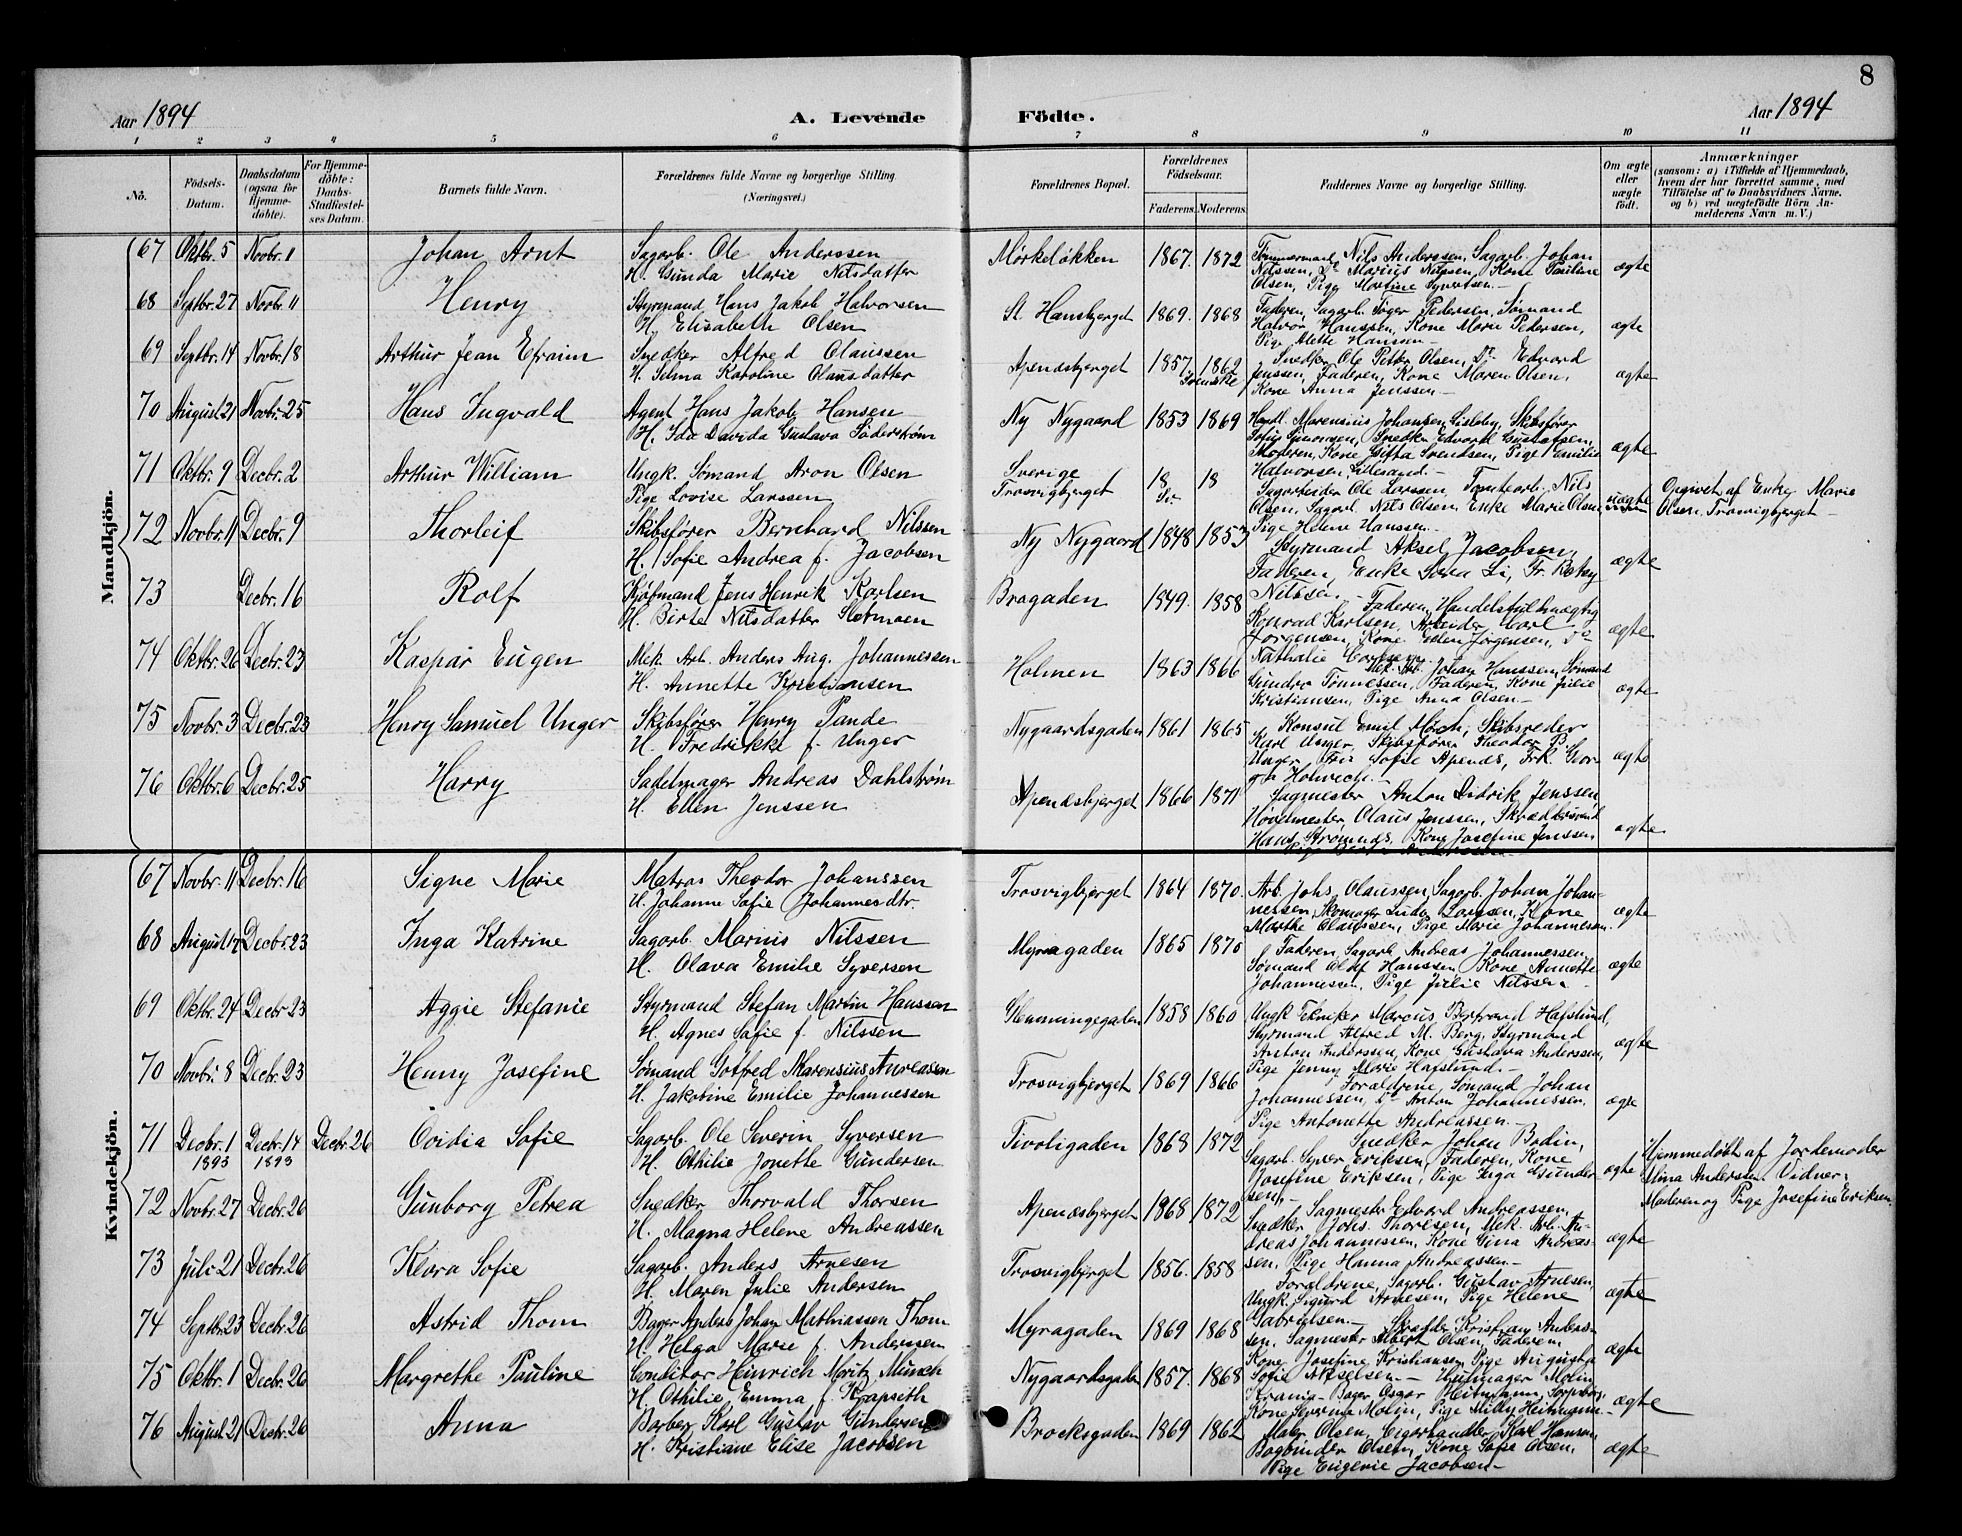 8
Aar 1894
A. Levende Födte.
Aar 1894
1 2 3 4 5 6 7 8 9 10 11
No.
Födsels-Datum.
Daabsdatum (ogsaa for Hjemmedøbte).
For Hjemmedøbte: Daabs-Stadfæstelses Datum.
Barnets fulde Navn.
Forældrenes fulde Navne og borgerlige Stilling
(Næringsvei.)
Forældrenes Bopæl.
Forældrenes Födselsaar.
Faderens. Moderens.
Faddernes Navne og borgerlige Stilling.
Om ægte eller uægte födt.
Anmærkninger
(saasom: a) i Tilfælde af Hjemmedaab, hvem der har forrettet samme, med Tilföielse af to Daabsvidners Navne. og b) ved uegtefödte Börn Anmelderens Navn m. V.)
Mandkjön.
67 Oktbr. 5 Novbr. 11 Johan Arnt
Sagarb. Ole Anderssen
H. Gunda Marie Nilsdatter
Mørkeløkken 1867. 1872
Tømmermand Nils Anderssen, Sagarb. Johan
Nilssen, Do Marius Nilssen, Kone Pauline
Olsen, Pige Martine Syvertsen.-
ægte
68 Septbr. 27 Novbr. 11 Henry
Styrmand Hans Jakob Halvorsen
H. Elisabeth Olsen
St. Hansbjerget 1869. 1868
Faderen, Sagarb. Inger Pedersen, Sømand
Halvor Hanssen, Kone Marie Pedersen,
Pige Mette Hanssen-
ægte
69 Septbr. 14 Novbr. 18 Arthur Jean Efraim
Snedker Alfred Olaussen
H. Selma Karoline Olausdatter
Apenæsbjerget 1857. 1862
Svenske
Snedker Ole Petter Olsen, Do Edvard
Jenssen, Faderen, Kone Maren Olsen,
Kone Anna Jenssen-
ægte
70 August 21 Novbr. 25 Hans Ingvald
Agent Hans Jakob Hansen
H. Ida Davida Gustava Söderström
Ny Nygaard 1853 1869
Handl. Marensius Johansen Lisleby, Skibsfører
Sofus Simonsen, Snedker Edvard Gustafsen,
Moderen, Kone Gifta Svendsen, Pige Emilie
Halvorsen, Lillesand.-
ægte
71 Oktbr. 9 Decbr. 2 Arthur William
Ungk. Sømand Aron Olsen
Pige Lovise Larssen
Sverige
Trosvigbjerget
18 18
Sv.
Sagarbeider Ole Larssen, Tomtearb. Nils
Olsen, Sagarb. Nils Olsen, Enke Marie Olsen,
Pige Helene Hanssen.-
uægte
Opgivet af Enke Marie
Olsen, Trosvigbjerget-
72 Novbr. 11 Decbr. 9 Thorleif
Skibsfører Bernhard Nilssen
H. Sofie Andrea f. Jacobsen
Ny Nygaard 1848 1853
Styrmand Aksel Jacobsen,
Faderen, Enke Sara Li, Fr. Betsy
Nilssen.-
ægte
73 Decbr. 16 Rolf
Kjøbmand Jens Henrik Karlsen
H. Birte Nilsdatter Slotmoen
Brogaden 1849. 1858
Faderen, Handelsfuldmægtig
Konrad Karlsen, Arbeider Carl
Jørgensen, Kone Ellen Jørgensen, Do
Nathalie
ægte
74 Oktbr. 26 Decbr. 23 Kaspar Eugen
Mek. Arb. Anders Aug. Johannessen
H. Annette Kristiansen
Holmen 1863 1866
Mek. Arb. Johan Hanssen, Sømand
Gundro Tønnessen, Faderen, Kone Julie
Kristiansen, Pige Anna Olsen.-
ægte
75 Novbr. 3 Decbr. 23 Henry Samuel Unger
Skibsfører Henry Pande
H. Fredrikke f. Unger
Nygaardsgaden 1861 1865
Konsul Emil Mörch, Skibsreder
Karl Unger, Skibsfører Theodor P.
Unger, Fru Sofie Apenæs, Frk. Geor-
ga
ægte
76 Oktbr. 6 Decbr. 25 Harry
Sadelmager Andreas Dahlstrøm
H. Ellen Jenssen
Apenæsbjerget 1866 1871
Sagmester Anton Didrik Jenssen,
Høvelmester Olaus Jenssen, Skræddersvend
Hans Strømnæs, Kone Josefine Jenssen,
ægte
Kvindekjön.
67 Novbr. 11 Decbr. 16 Signe Marie
Matros Theodor Johanssen
H. Johanne Sofie Johannesdtr.
Trosvigbjerget 1864 1870.
Arb. Johs. Olaussen, Sagarb. Johan Johan-
nessen, Skomager Ludv. Larssen, Kone
Marthe Olaussen, Pige Marie Johannessen.
ægte
68 August 17 Decbr. 23 Inga Katrine
Sagarb. Marius Nilssen
H. Olava Emilie Syversen
Myragaden 1865 1870
Faderen, Sagarb. Andreas Johannessen,
Sømand Oluf Hanssen, Kone Annette
Johannessen, Pige Julie Nilssen
ægte
69 Oktbr. 24 Decbr. 23 Aggie Stefanie
Styrmand Stefan Martin Hanssen
H. Agnes Sofie f. Nilssen
Glemmingegaden 1858 1860
Ungk. Tekniker Marcus Bertrand Hafslund,
Styrmand Alfred M. Berg, Styrmand
Anton Anderssen, Kone Gustava Anderssen,
Pige Jenny Marie Hafslund.-
ægte
70 Novbr. 8 Decbr. 23 Henny Josefine
Sømand Gotfred Marensius Andreassen
H. Jakobine Emilie Johannessen
Trosvigbjerget 1869 1866
Forældrene, Sømand Johan
Johannessen, Do Anton Johannessen,
Pige Antonette Andreassen-
ægte
71 Decbr. 1 1893 Decbr. 14 1893 Decbr. 26 Ovidia Sofie
Sagarb. Ole Severin Syversen
H. Othilie Jonette Gundersen
Tivoligaden 1868 1872
Snedker Johan Bodin,
Sagarb. Syver Eriksen, Faderen, Kone
Josefine Eriksen, Pige Inga Gunder-
sen.-
ægte
Hjemmedøbt af Jordemoder
Mina Anderssen. Vidner:
Moderen og Pige Josefine Eriksen.
72 Novbr. 27 Decbr. 26 Gunborg Petrea
Snedker Thorvald Thorsen
H. Magna Helene Andreassen
Apenæsbjerget 1868 1872
Sagmester Edvard Andreassen,
Snedker Johs. Thoresen, Mek. Arb. An-
dreas Johannessen, Kone Gina Andreas-
sen, Pige Hanna Andreassen.-
ægte
73 Juli 21 Decbr. 26 Klara Sofie
Sagarb. Anders Arnesen
H. Maren Julie Andersen
Trosvigbjerget 1856. 1858
Forældrene, Sagarb. Gustav Arnesen,
Ungk. Sigurd Arnesen, Pige Helene
Gabrielsen.-
ægte
74 Septbr. 23 Decbr. 26 Astrid Thom
Bager Anders Johan Mathiassen Thom
H. Helga Marie f. Anderssen
Myragaden 1869 1868
Skrædder Kristian Anders-
sen, Sagmester Albert Olsen, Faderen,
Kone Josefine Kristiansen, Pige Augusta
Sofie Nilselsen-
ægte
75 Oktbr. 1 Decbr. 26 Margrethe Pauline
Conditor Heinrich Moritz Münch
H. Othilie Emma f. Krapseth
Nygaardsgaden 1857. 1868
Hjulmager Molin,
Krania, Bager Osgar Heitmann, Sarpsborg,
Kone Severina Molin, Pige Milly Heitmann-
ægte
76 August 21 Decbr. 26 Anna
Barber Karl Gustav Gundersen
H. Kristiane Elise Jacobsen
Brocksgaden 1869 1862
Maler Olsen, Cigarhandler Karl Hansen,
Bogbinder Olsen, Kone Sofie Olsen,
Pige Eugenie Jacobsen-
ægte